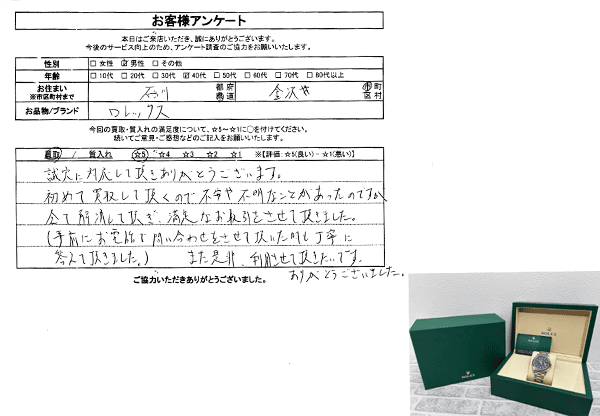 お客様アンケート
本日はご来店いただき、誠にありがとうございます。
今後のサービス向上のため、アンケート調査のご協力をお願いいたします。
性別 □女性 ☑男性 □その他
年齢 □10代 □20代 □30代 ☑40代 □50代 □60代 □70代 □80代以上
お住まい ※市区町村まで 石川 都府道県 金沢市 市町区村
お品物/ブランド ロレックス
今回の買取・質入れの満足度について、☆5～☆1に○を付けてください。
続いてご意見・ご感想などのご記入をお願いいたします。
買取 / 質入れ ☆5 ☆4 ☆3 ☆2 ☆1 ※【評価:☆5(良い)－☆1(悪い)】
誠実に対応して頂きありがとうございます。
初めて買取して頂くので不安や不明なことがあったのですが、
全て解消して頂き、満足なお取引をさせて頂きました。
(事前にお電話で問い合わせをさせて頂いた時も丁寧に
答えて頂きました。) また是非、利用させて頂きたいです。
ありがとうございました。
ご協力いただきありがとうございました。
ROLEX
ROLEX